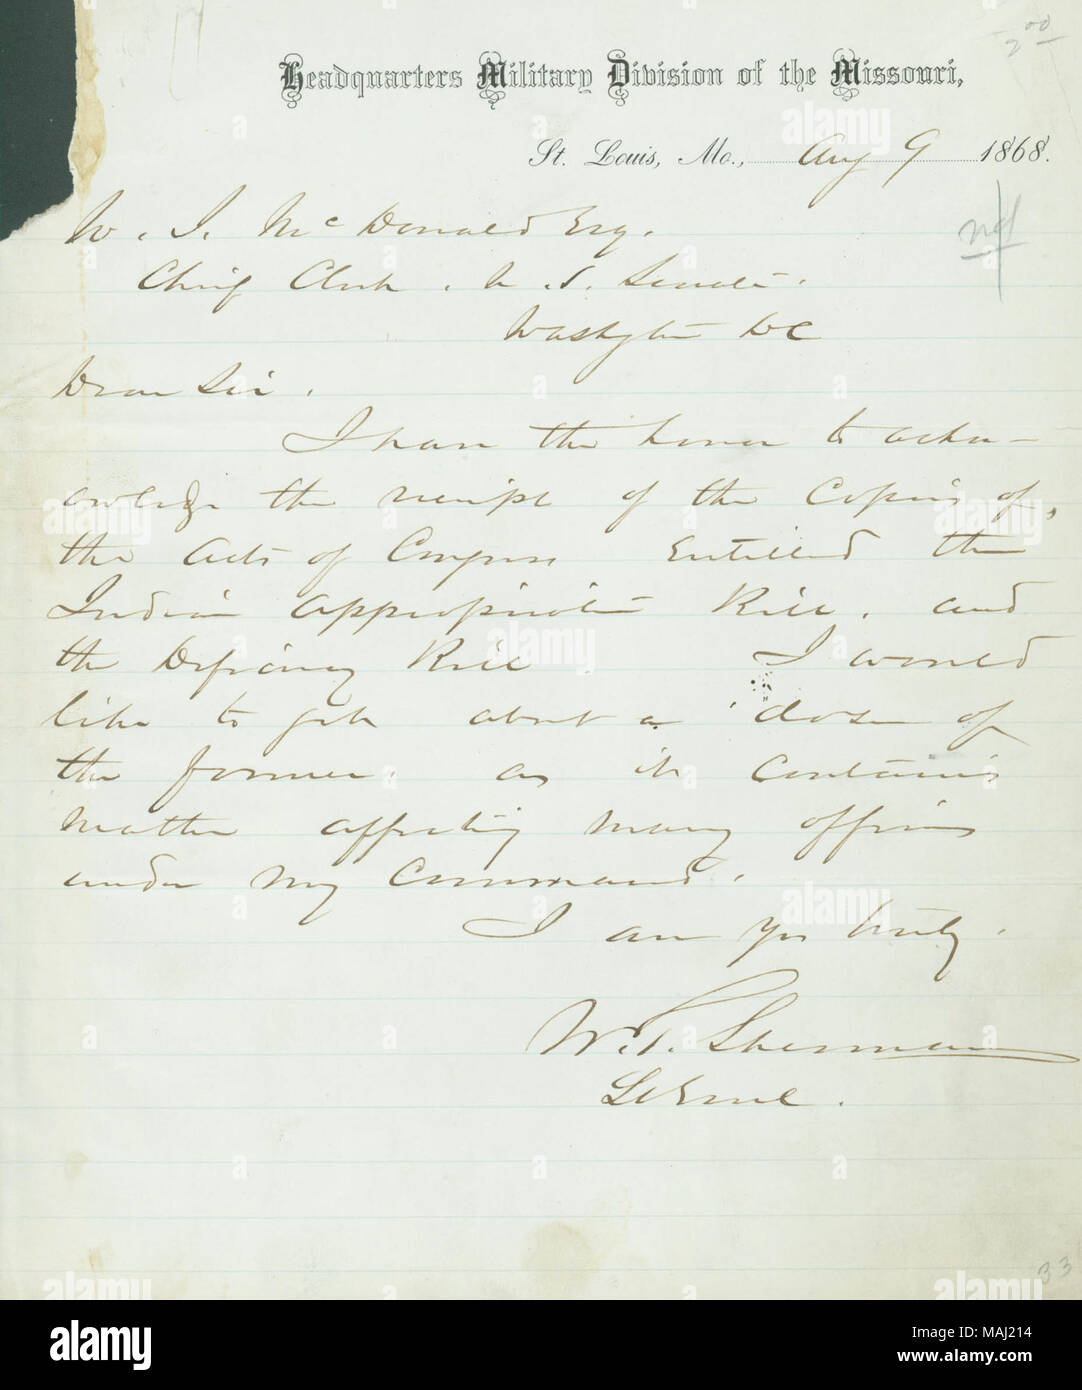 200
Headquarters Military Division of the Missouri,
St. Louis, Mo., Aug 9 1868.
W. J. McDonald Esq.
Chief Clerk. U.S. Senate.
Washington DC
Dear Sir.
I have the honor to ackn-
owledge the receipt of the Copies of,
the Acts of Congress Entitled the
Indian Appropriation Bill, and
the Deficiency Bill I would
like to get about a dozen of
the former. as it Contains
matter affecting many officers
under my Command.
I am Yrs truly.
W.T. Sherman
Lt Genl.
33
alamy
Image ID: MAJ214
www.alamy.com